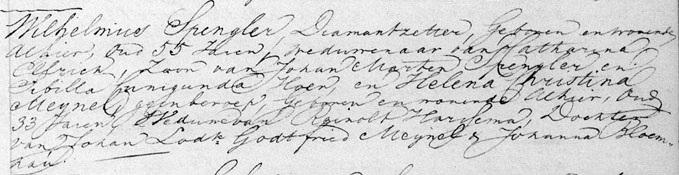 Wilhelmus Spengler, Diamantzetter, Geboren en wonende
alhier, Oud 55 Jaren, Weduwenaar van Catharina
Elfrich, Zoon van Johan Marten Spengler en
Sibilla Cunigunda Hoen, en Helena Christina
Meynel, geen beroep, Geboren en wonende Alhier, Oud
33 Jaren, Weduwe van Reinolt Harssema, Dochter
van Johan Lodk Godtfried Meynel & Johanna Bloem-
hau